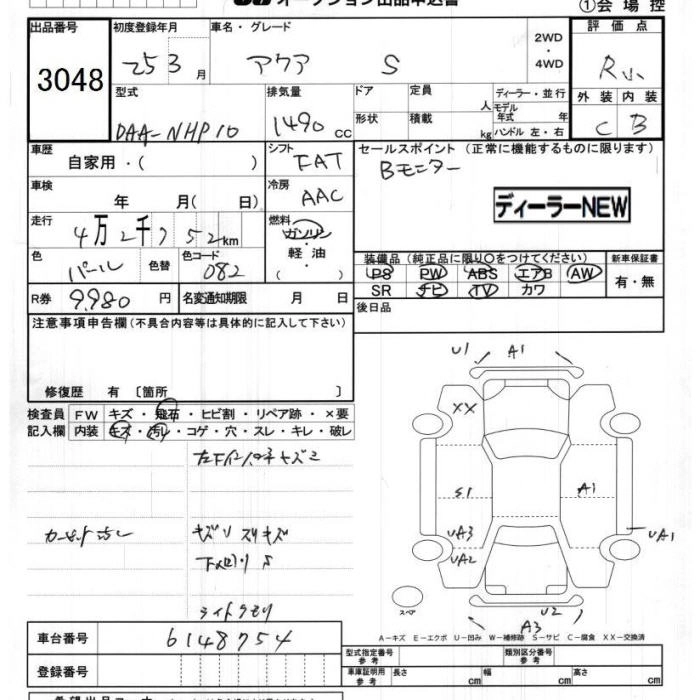 オークション出品申込書
①会場控
出品番号 3048
初度登録年月 25 3月
車名・グレード アクア S
2WD・4WD
評価点 R
外装 C 内装 B
型式 DAA-NHP10
排気量 1490 cc
ドア 定員 人
形状 積載 kg
ディーラー・並行
モデル年式 年
ハンドル 左・右
車歴 自家用・( )
シフト FAT
セールスポイント(正常に機能するものに限ります)
Bモニター
ディーラーNEW
車検 年 月( 日)
冷房 AAC
走行 4万2千752km
燃料 ガソリン・軽油・( )
色 パール 色替 色コード 082
装備品(純正品に限り○をつけてください)
PS PW ABS エアB AW
SR ナビ TV カワ
新車保証書 有・無
R券 9,980円
名変通知期限 月 日
後日品
注意事項申告欄(不具合内容等は具体的に記入して下さい)
修復歴 有〔箇所 〕
検査員記入欄
FW キズ・飛石・ヒビ割・リペア跡・×要
内装 キズ・汚れ・コゲ・穴・スレ・キレ・破レ
ライトクモリ
U1 A1
XX
S1 A1
UA3
UA2 UA1
スペア
U2
A3
A-キズ E-エクボ U-凹み W-補修跡 S-サビ C-腐食 XX-交換済
車台番号 6148754
登録番号
型式指定番号 参考
類別区分番号 参考
車庫証明用 参考 長さ 幅 高さ